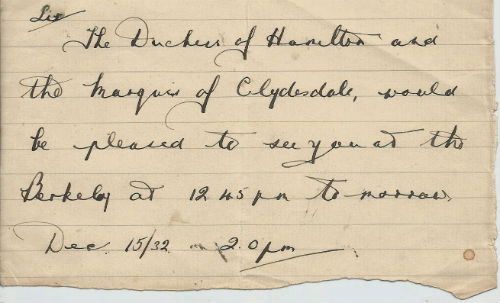 Sir
The Duchess of Hamilton and
the Marquis of Clydesdale, would
be pleased to see you at the
Berkeley at 12 45 pm to-morrow
Dec. 15/32 2.0 pm